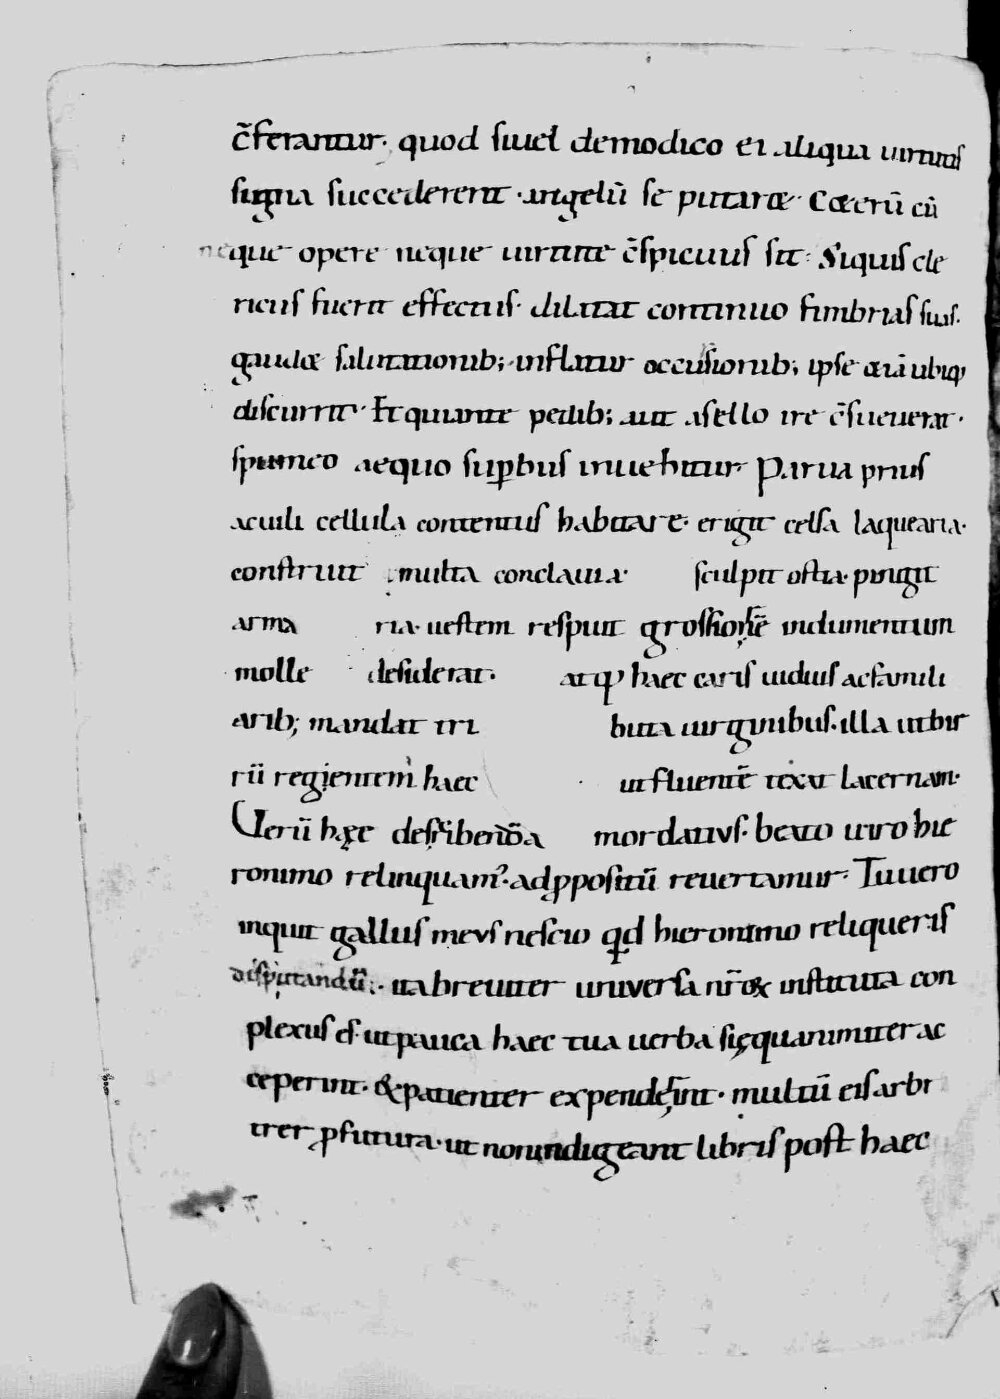 c̄ferantur. quod si uel demodico ei aliqua uirtutis
signa succederent. angelū se putaret. Ceterū cū
neque opere neque uirtute c̄spicuus sit: Siquis cle
ricus fuerit effectus. dilatat continuo fimbrias suas.
gaudet salutationib; inflatur occursionib; ipse etiā ubiq;
discurrit. Et qui ante pedib; aut asello ire c̄sueuerat.
spumeo aequo sup̱bus inuehitur. Parua prius
acuili cellula contentus habitare. erigit celsa laquearia.
construit multa conclauia. sculpit ostia. pingit
arma ria. uestem respuit grossiorē indumentum
molle desiderat. atq; haec caris uiduis acfamili
arib; mandat tri buta uirginibus. illa utbir
rū rigentem haec ut fluentē texat lacernam.
Uerū hęc describenda mordatius. beato uiro hie
ronimo relinquam'. ad p̱positū reuertamur. Tu uero
inquit gallus meus nescio qd hieronimo reliqueris
disputandū. ita breuiter uniuersa nr̄ox instituta con
plexus es. ut pauca haec tua uerba si ęquanimiter ac
ceperint. & patienter expenderint. multū eis arbi
trer p̱futura. ut non indigeant libris post haec